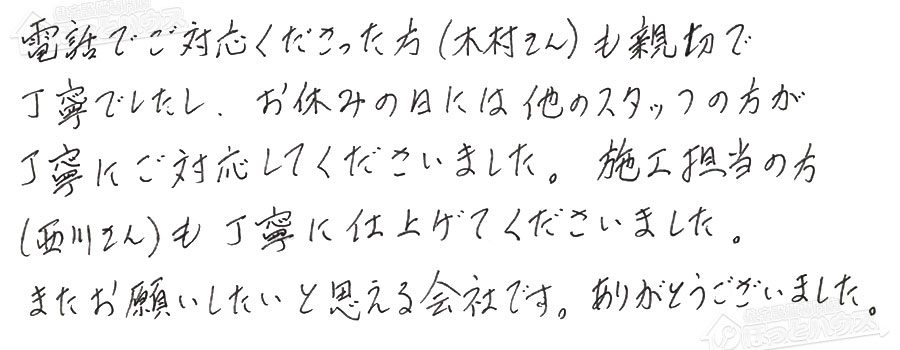 電話でご対応くださった方(木村さん)も親切で
丁寧でしたし、お休みの日には他のスタッフの方が
丁寧にご対応してくださいました。施工担当の方
(西川さん)も丁寧に仕上げてくださいました。
またお願いしたいと思える会社です。ありがとうございました。